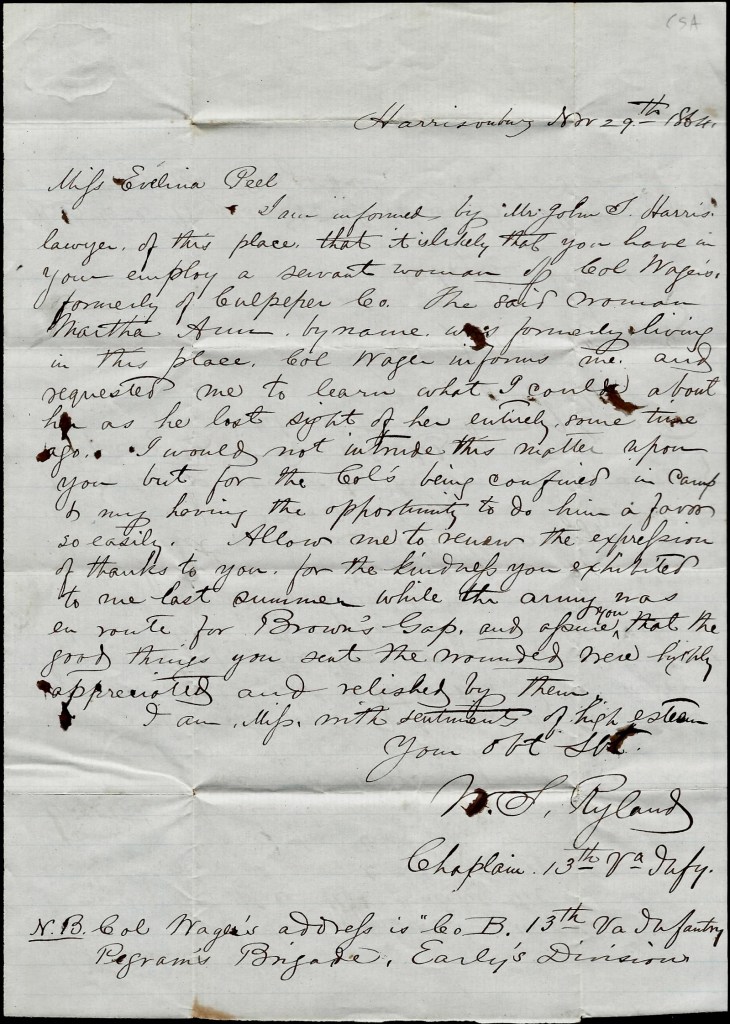 CSA
Harrisonburg Nov 29th 1864.
Miss Evelina Peel
I am informed by Mr. John S. Harris.
lawyer. of this place. that it is likely that you have in
your employ a servant woman of Col Wager's.
formerly of Culpeper Co. The said woman
Martha Ann. by name. was formerly living
in this place. Col Wager informs me. and
requested me to learn what I could about
her as he lost sight of her entirely. some time
ago. I would not intrude this matter upon
you but for the Col's being confined in camp
& my having the opportunity to do him a favor
so easily. Allow me to renew the expression
of thanks to you. for the kindness you exhibited
to me last summer while the army was
en route for Brown's Gap. and assure you that the
good things you sent the wounded were highly
appreciated and relished by them.
I am, Miss. with sentiments of high esteem
Your obt Svt.
W. S. Ryland
Chaplain. 13th Va Infy.
N.B. Col Wager's address is "Co B. 13th Va Infantry
Pegram's Brigade, Early's Division